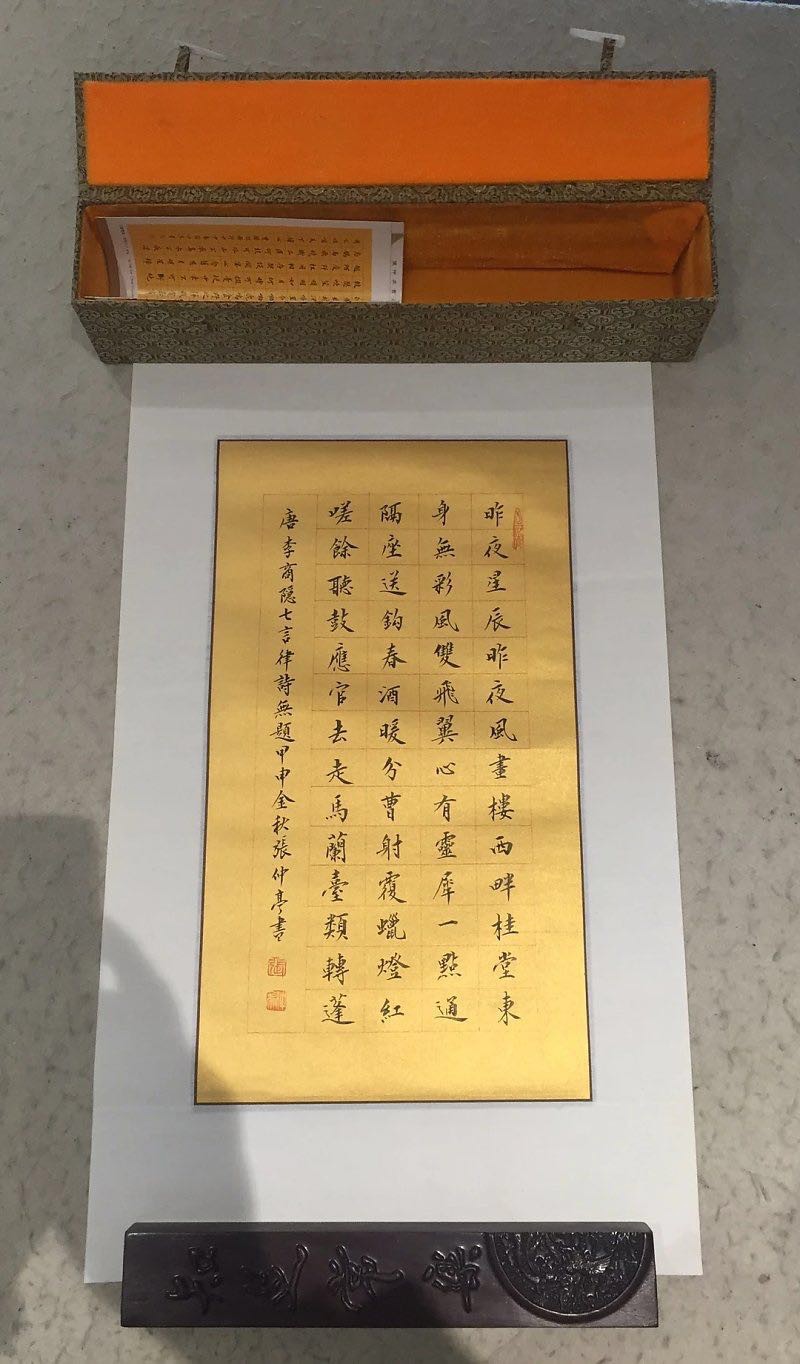 昨夜星辰昨夜風畫樓西畔桂堂東
身無彩風雙飛翼心有靈犀一點通
隔座送鈎春酒暖分曹射覆蠟燈紅
嗟餘聽鼓應官去走馬蘭臺類轉蓬
唐李商隱七言律詩無題甲申金秋張仲亭書